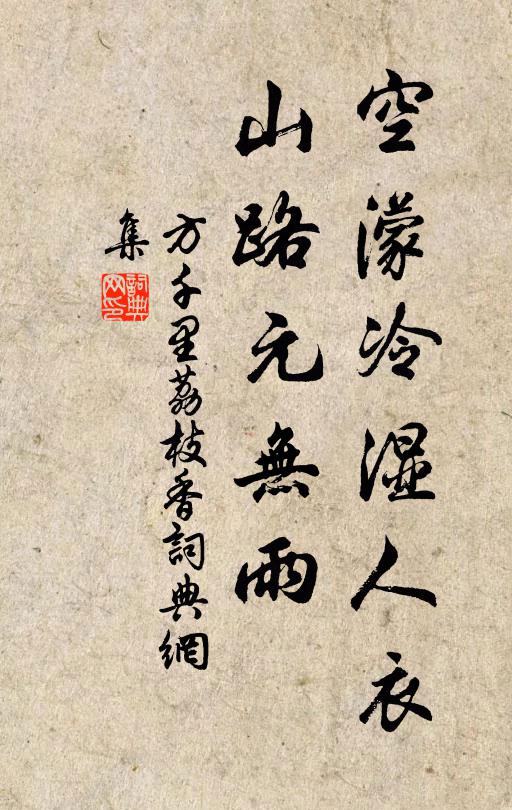 空濛冷湿人衣
山路元無雨
方千里荔枝香詞典網
集
詞典
网印